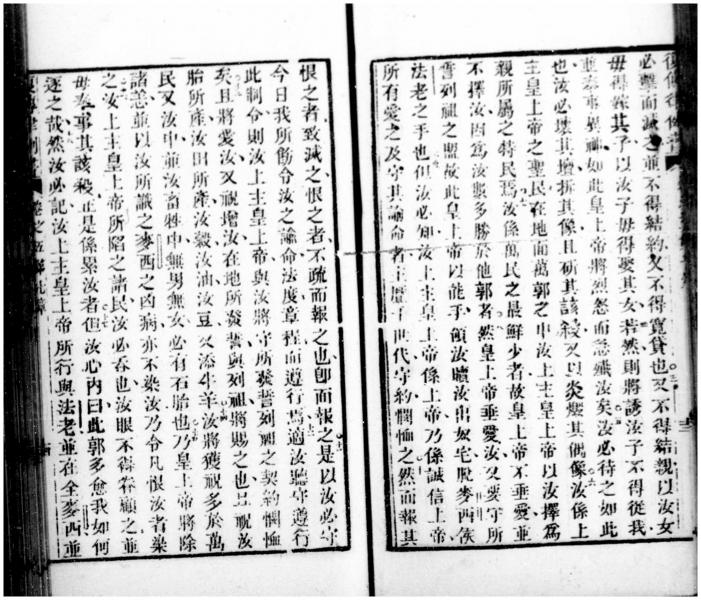 復傳律例書
必擊而滅之並不得結約又不得寬貸也又不得結親以汝女
毋得嫁其子以汝子毋得娶其女若然則將誘汝子不得從我
並奉事異神如此皇上帝將烈怒而急殲汝矣汝必待之如此
也汝必壞其壇拆其像且斫其該殺又以炎燬其偶像汝係上
主皇上帝之聖民在地面萬郭之中汝上主皇上帝以汝擇為
親所屬之特民焉汝係萬民之最鮮少者故皇上帝不垂愛並
不擇汝因為汝衆多勝於他郭者然皇上帝垂愛汝又要守所
誓列祖之盟故此皇上帝以能手領汝贖汝出奴宅脫麥西侯
法老之手也但汝必知汝上主皇上帝係上帝乃係誠信上帝
所有愛之及守其諭命者至歷千世代守約憫恤之然而報其
恨之者致滅之恨之者不疏而報之也卽而報之是以汝必守
今日我所飭令汝之諭命法度章程而遵行焉適汝聽守遵行
此制令則汝上主皇上帝與汝將守所發誓列祖之契約憫恤
矣且將愛汝又祝增汝在地所發誓與列祖將賜之也且祝汝
胎所產汝田所產汝穀汝油汝豆又添牛羊汝將獲祝多於萬
民又汝中並汝畜牲中無男無女必有石胎也乃皇上帝將除
諸恙並以汝所識之麥西之凶病亦不染汝乃令凡恨汝者染
之汝上主皇上帝所陷之諸民汝必吞也汝眼不得眷顧之並
毋奉事其該殺正是係累汝者但汝心內曰此郭多愈我如何
逐之哉然汝必記汝上主皇上帝所行與法老並在全麥西並
卷之五